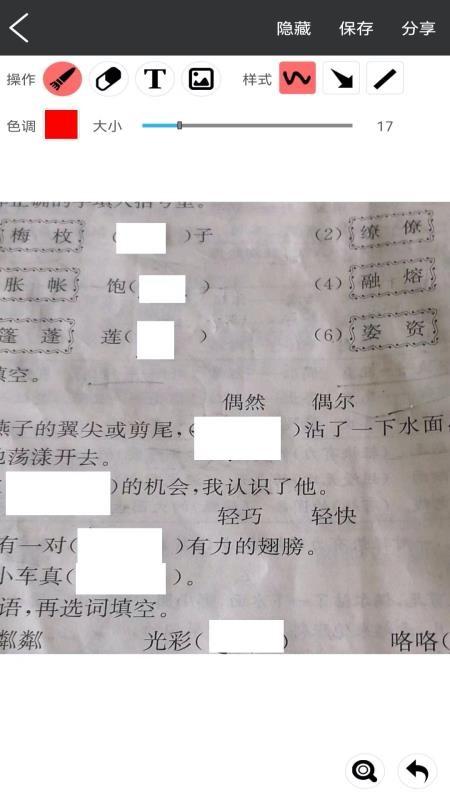 隐藏 保存 分享
操作 T 样式
色调 大小 17
正确的字填入括号里。
梅 枝 ( )子 (2) 缭 僚
胀 帐 饱( ) (4) 融 熔
篷 蓬 莲( ) (6) 姿 资
填空。
偶然 偶尔
燕子的翼尖或剪尾,( )沾了一下水面
荡漾开去。
)的机会,我认识了他。
轻巧 轻快
有一对( )有力的翅膀。
小车真( )。
语,再选词填空。
粼粼 光彩( ) 咯咯(